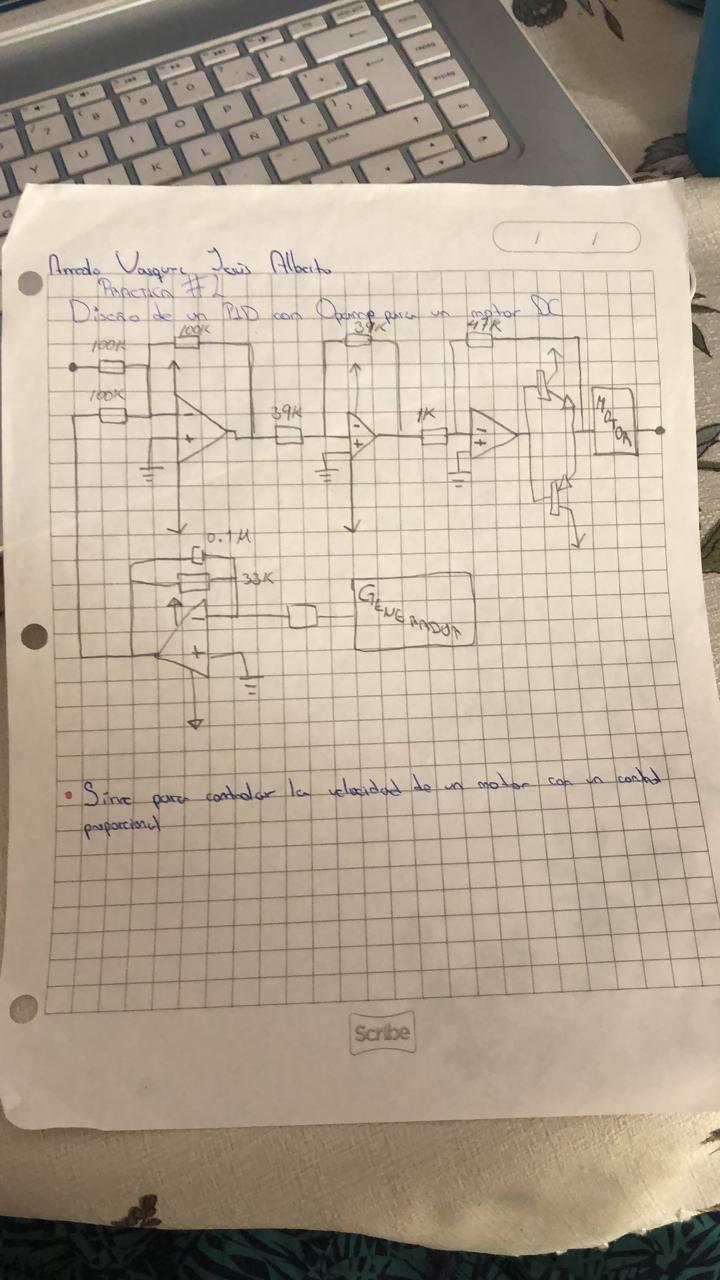 Vasquez Jesús Alberto
Practica #2
Diseño de un PID con Opamp para un motor DC
100K
39K
47K
100K
100K
39K
1K
MOTOR
-
+
-
+
-
+
0.1M
33K
GENERADOR
-
+
• Sirve para controlar la velocidad de un motor con un control
proporcional
Scribe